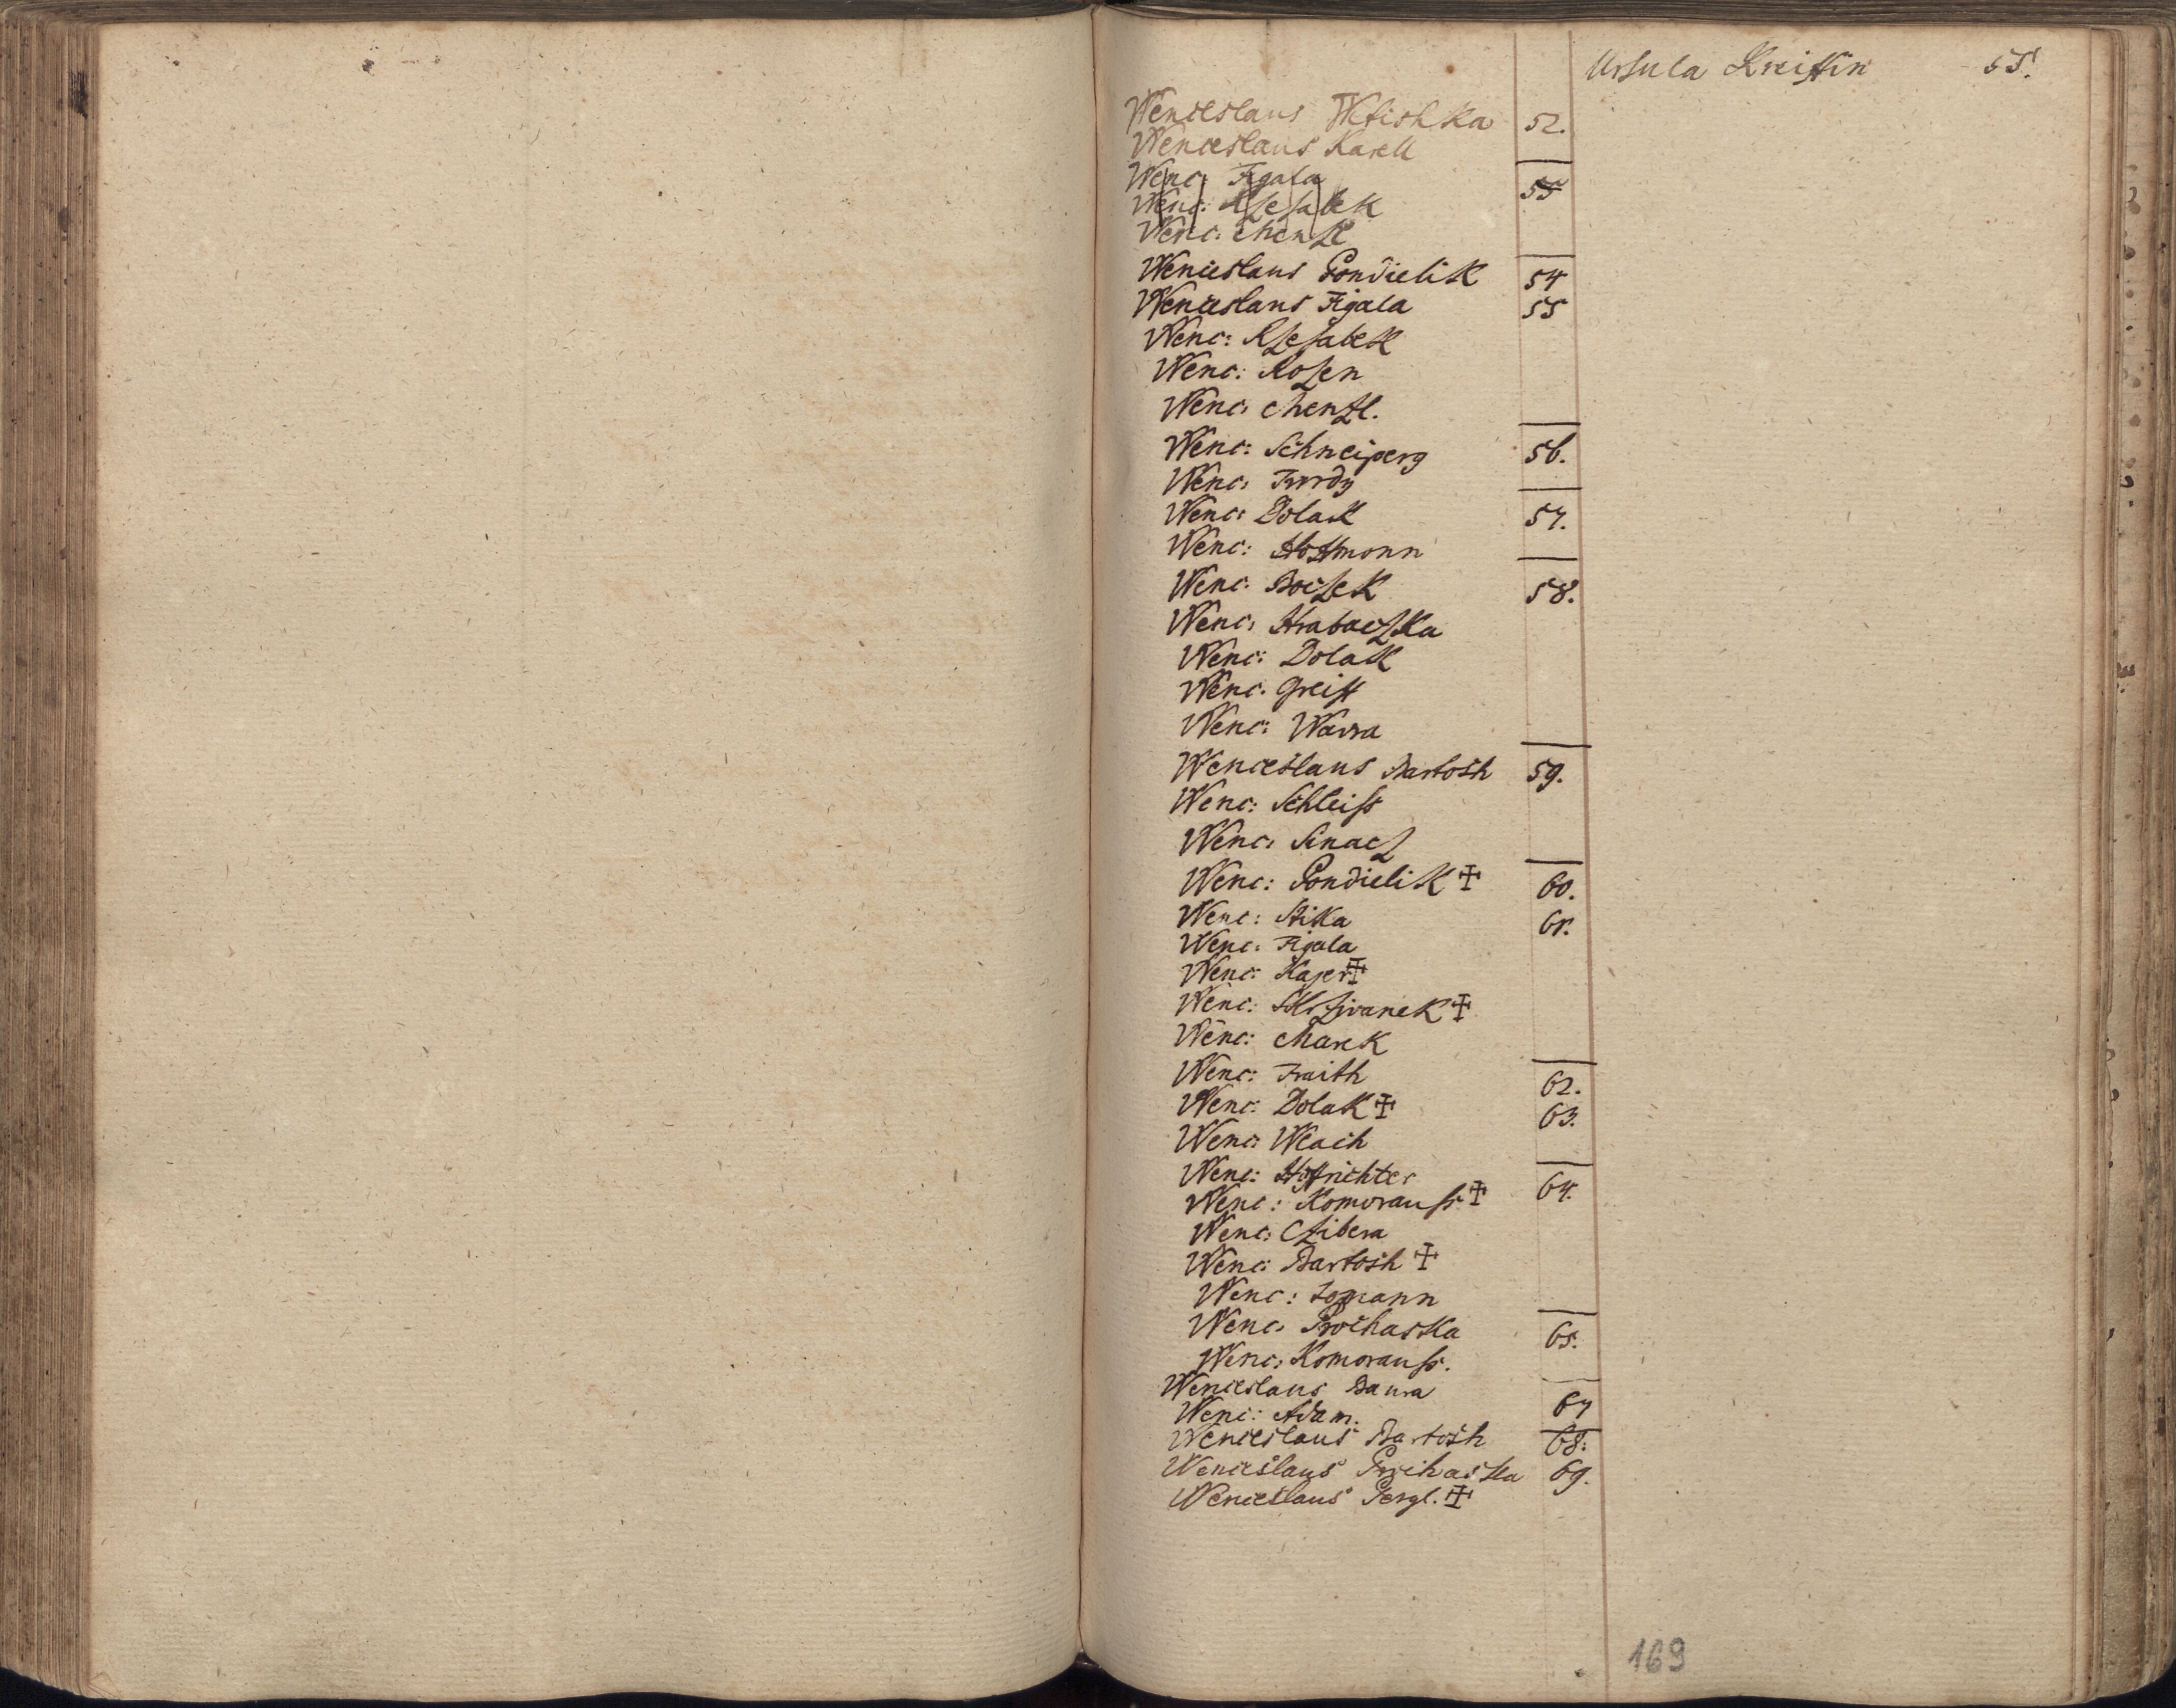 Ursula Kreissin 65.
Wenceslaus Wletishka 52.
Wenceslaus Karell
Wenc: Figala 55
Wenc: Rzesabek
Wenc: Menzl
Wenceslaus Pondielik 54
Wenceslaus Figala 55
Wenc: Rzesabek
Wenc: Rosen
Wenc: Menzl.
Wenc: Schneiperg 56.
Wenc: Twrdy
Wenc: Dolak 57.
Wenc: Hoffmonn
Wenc: Boczek 58.
Wenc: Hrabaczka
Wenc: Dolak
Wenc: Greiss
Wenc: Wavra
Wenceslaus Bartosh 59.
Wenc: Schleiss
Wenc: Sinacz
Wenc: Pondielik ‡ 60.
Wenc: Stika 61.
Wenc: Figala
Wenc: Kajer ‡
Wenc: Skrziwanek ‡
Wenc: Marek
Wenc: Fraith 62.
Wenc: Dolak ‡ 63.
Wenc: Wlach
Wenc: Hoffrichter 64.
Wenc: Komorauss ‡
Wenc: Czibera
Wenc: Bartosh ‡
Wenc: Tomann
Wenc: Prochaska 65.
Wenc: Komorauss.
Wenceslaus Baura
Wenc: Adam. 67
Wenceslaus Bartosh 68:
Wenceslaus Prochaska 69.
Wenceslaus Pergl. ‡
169